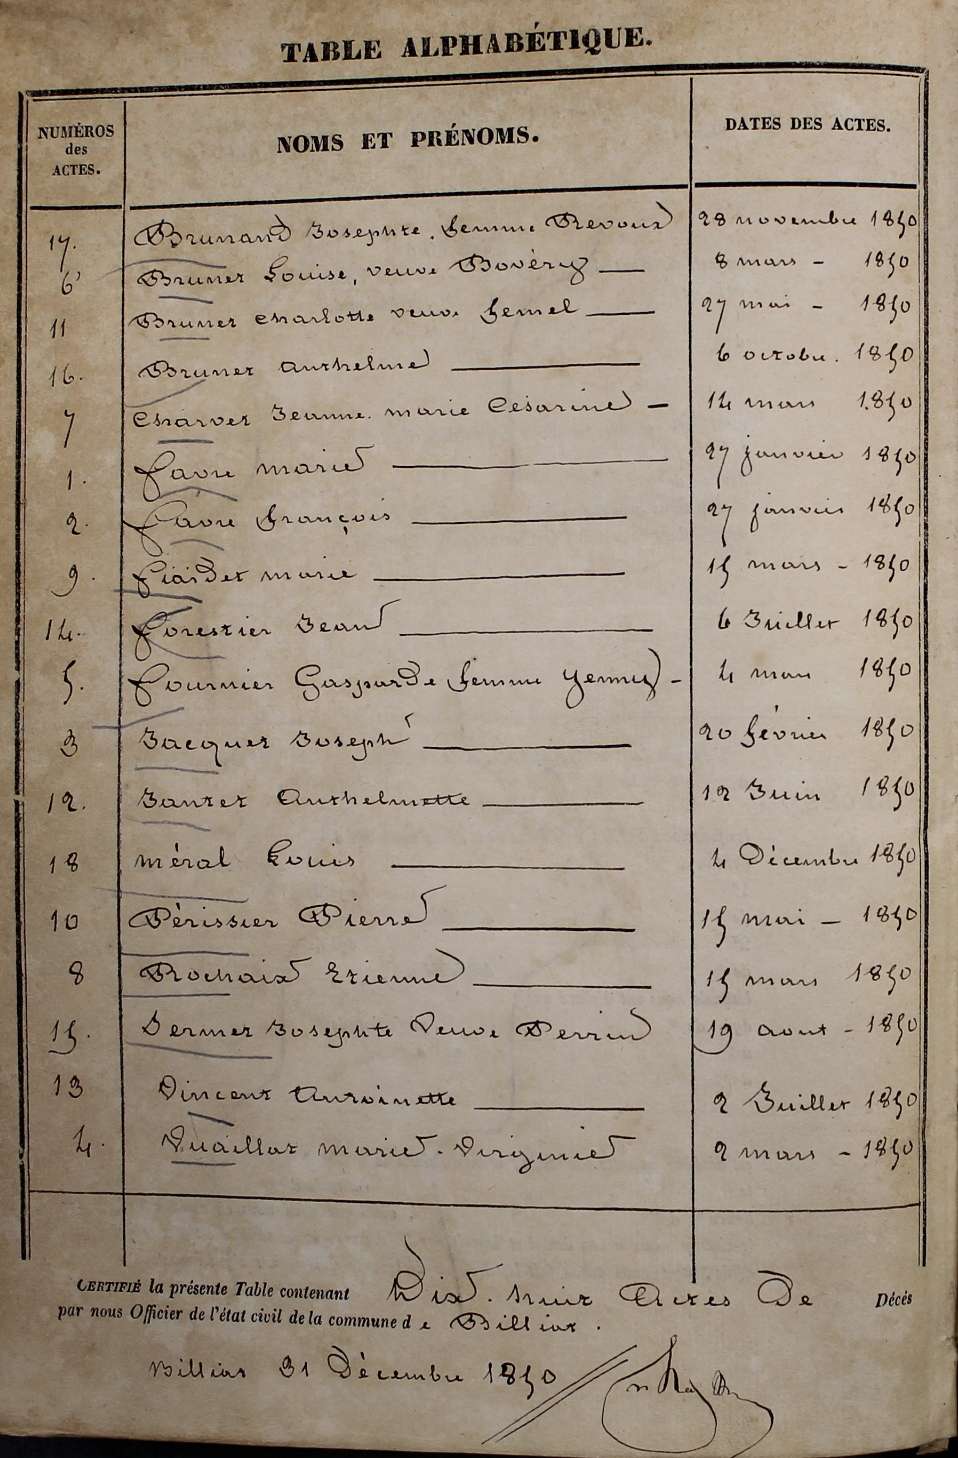 TABLE ALPHABÉTIQUE.
NUMÉROS des ACTES. NOMS ET PRÉNOMS. DATES DES ACTES.
17. Brunand Josephte, femme Revoux 28 novembre 1850
6 Brunet Louise, veuve Bovéry 8 mars - 1850
11 Brunet charlotte veuve femel 27 mai - 1850
16. Brunet anthelme 6 octobre. 1850
7 Charvet Jeanne marie Césarine 14 mars 1850
1. favre marie 27 janvier 1850
2. favre françois 27 janvier 1850
9. fiardet marie 15 mars - 1850
14. forestier Jean 6 Juillet 1850
5. fournier Gasparde femme yenny 4 mars 1850
3 Jacquet Joseph 20 février 1850
12. Jantet Anthelmette 12 Juin 1850
18 méral Louis 4 Décembre 1850
10 Périssier Pierre 15 mai - 1850
8 Rochaix Etienne 15 mars 1850
15. Vermet Josephte Veuve Perrin 19 aout - 1850
13 Vincent Antoinette 2 Juillet 1850
4. Vuaillat marie-Virginie 2 mars - 1850
CERTIFIÉ la présente Table contenant Dix-huit Actes De Décés
par nous Officier de l'état civil de la commune de Billiat.
Billiat 31 Décembre 1850